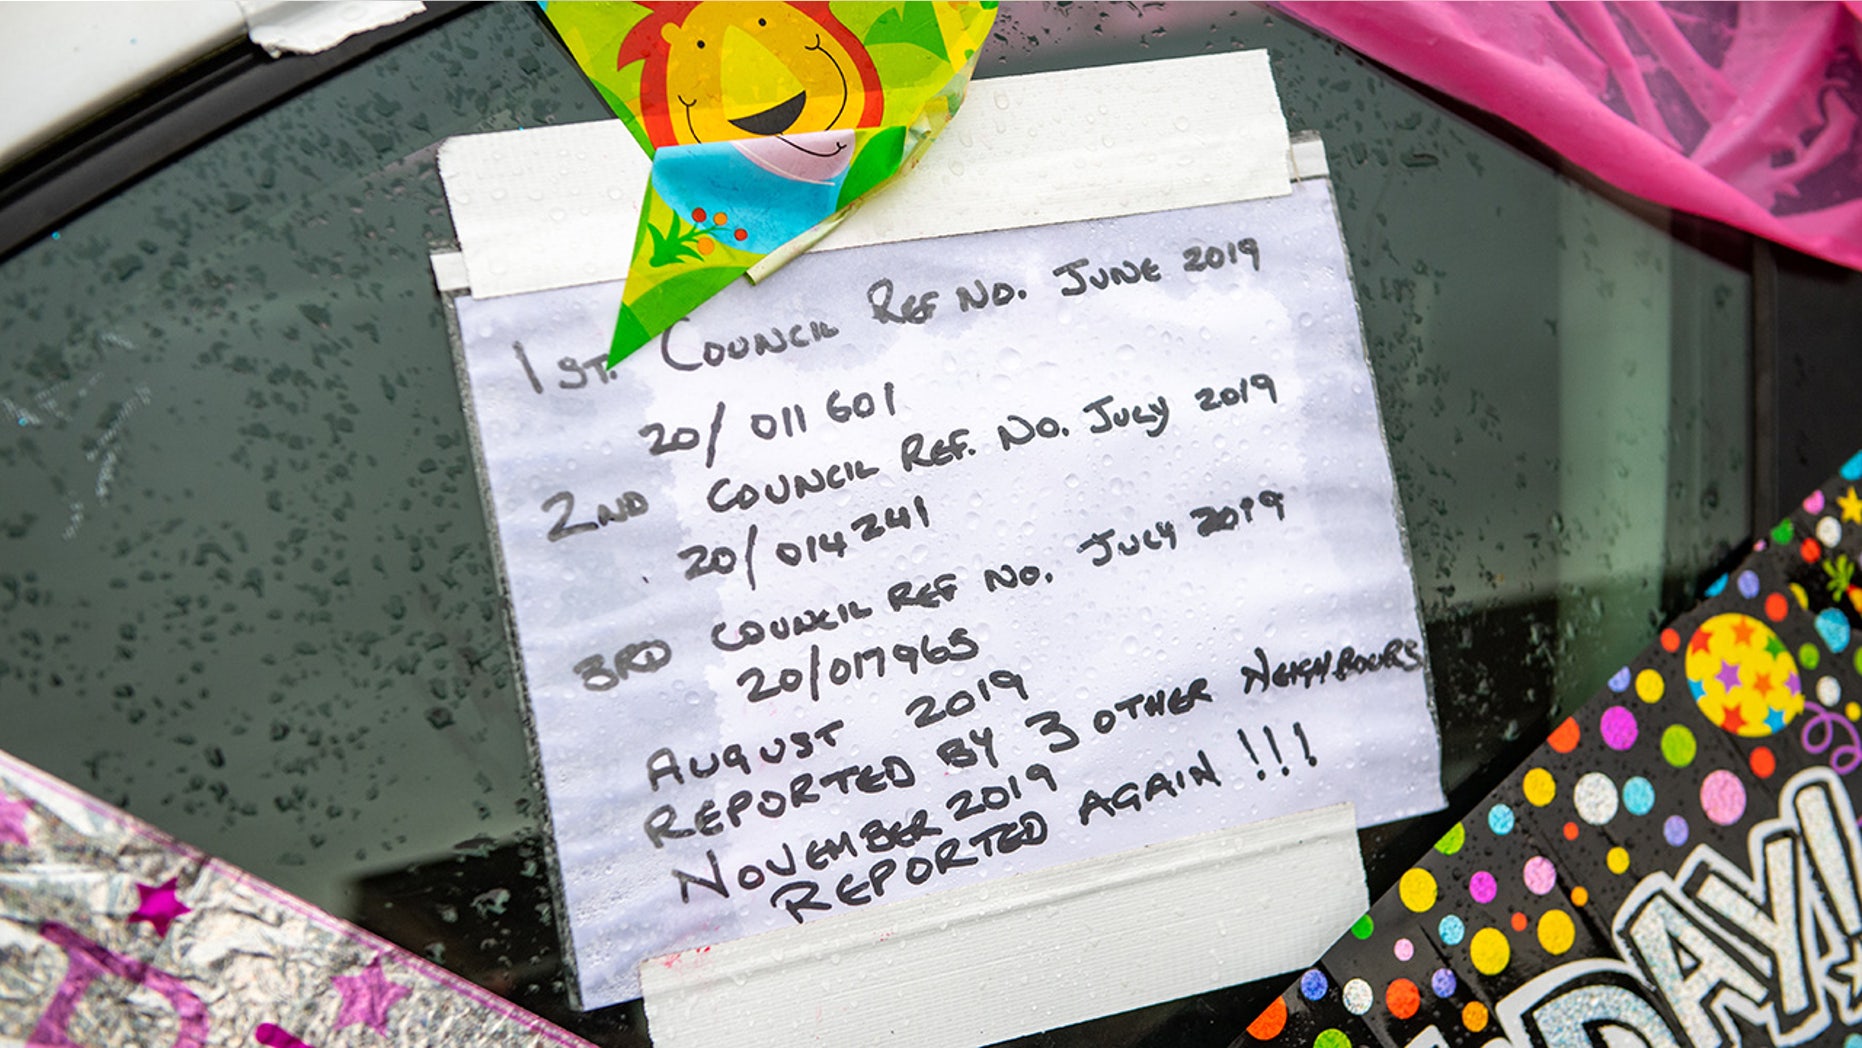 1ST. COUNCIL REF NO. JUNE 2019
20/011601
2ND COUNCIL REF. NO. JULY 2019
20/014241
3RD COUNCIL REF NO. JULY 2019
20/017965
AUGUST 2019
REPORTED BY 3 OTHER NEIGHBOURS
NOVEMBER 2019
REPORTED AGAIN!!!
DAY!